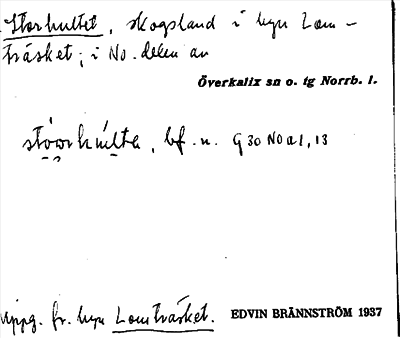 Storhultet, skogsland i byn Lom-
träsket; i No. delen av
Överkalix sn o. tg Norrb. l.
bf. n. G 30 NO a 1, 13
Uppg. fr. byn Lomträsket. EDVIN BRÄNNSTRÖM 1937